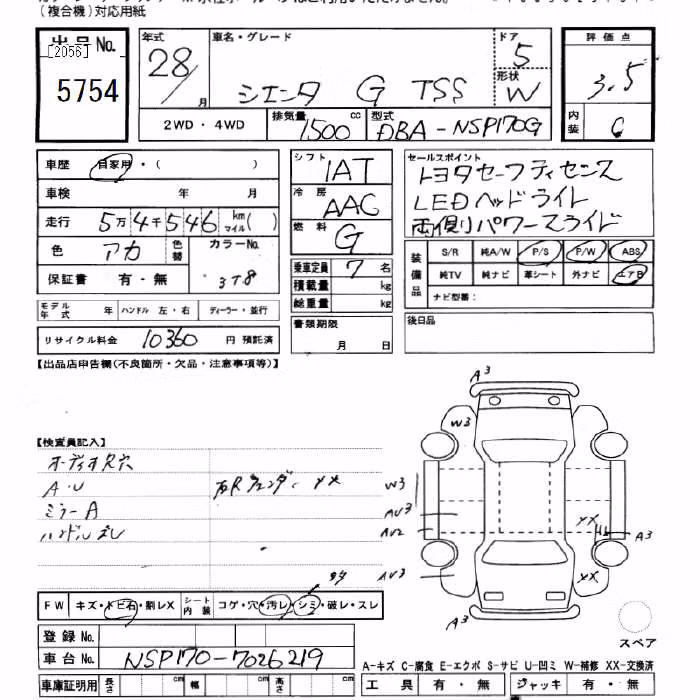 (複合機)対応用紙
出品No.
[2056]
5754
年式 28/月
車名・グレード シエンタ G TSS
ドア 5
形状 W
評価点 3.5
内装 C
2WD・4WD
排気量 1500 cc
型式 DBA-NSP170G
車歴 自家用・( )
車検 年 月
走行 5万4千546 km マイル( )
色 アカ 色替 カラーNo. 3T8
保証書 有・無
モデル年式 年 ハンドル 左・右 ディーラー・並行
リサイクル料金 10360 円 預託済
シフト IAT
冷房 AAC
燃料 G
乗車定員 7 名
積載量 kg
総重量 kg
書類期限 月 日
セールスポイント
トヨタセーフティセンス
LEDヘッドライト
両側パワースライド
装備品 S/R 純A/W P/S P/W ABS
純TV 純ナビ 革シート 外ナビ エアB
ナビ型番:
後日品
【出品店申告欄(不良箇所・欠品・注意事項等)】
【検査員記入】
オーディオ穴
A・U
ミラーA
ハンドルズレ
右Rフェンダー XX
A3
W3
W3
AU3
AU2
AU3
XX
XX
A3
A3
スペア
FW キズ・トビ石・割レX
シート内装 コゲ・穴・汚レ・シミ・破レ・スレ
登録No.
車台No. NSP170-7026219
車庫証明用 長さ cm 幅 cm 高さ cm
A-キズ C-腐食 E-エクボ S-サビ U-凹ミ W-補修 XX-交換済
工具 有・無 ジャッキ 有・無